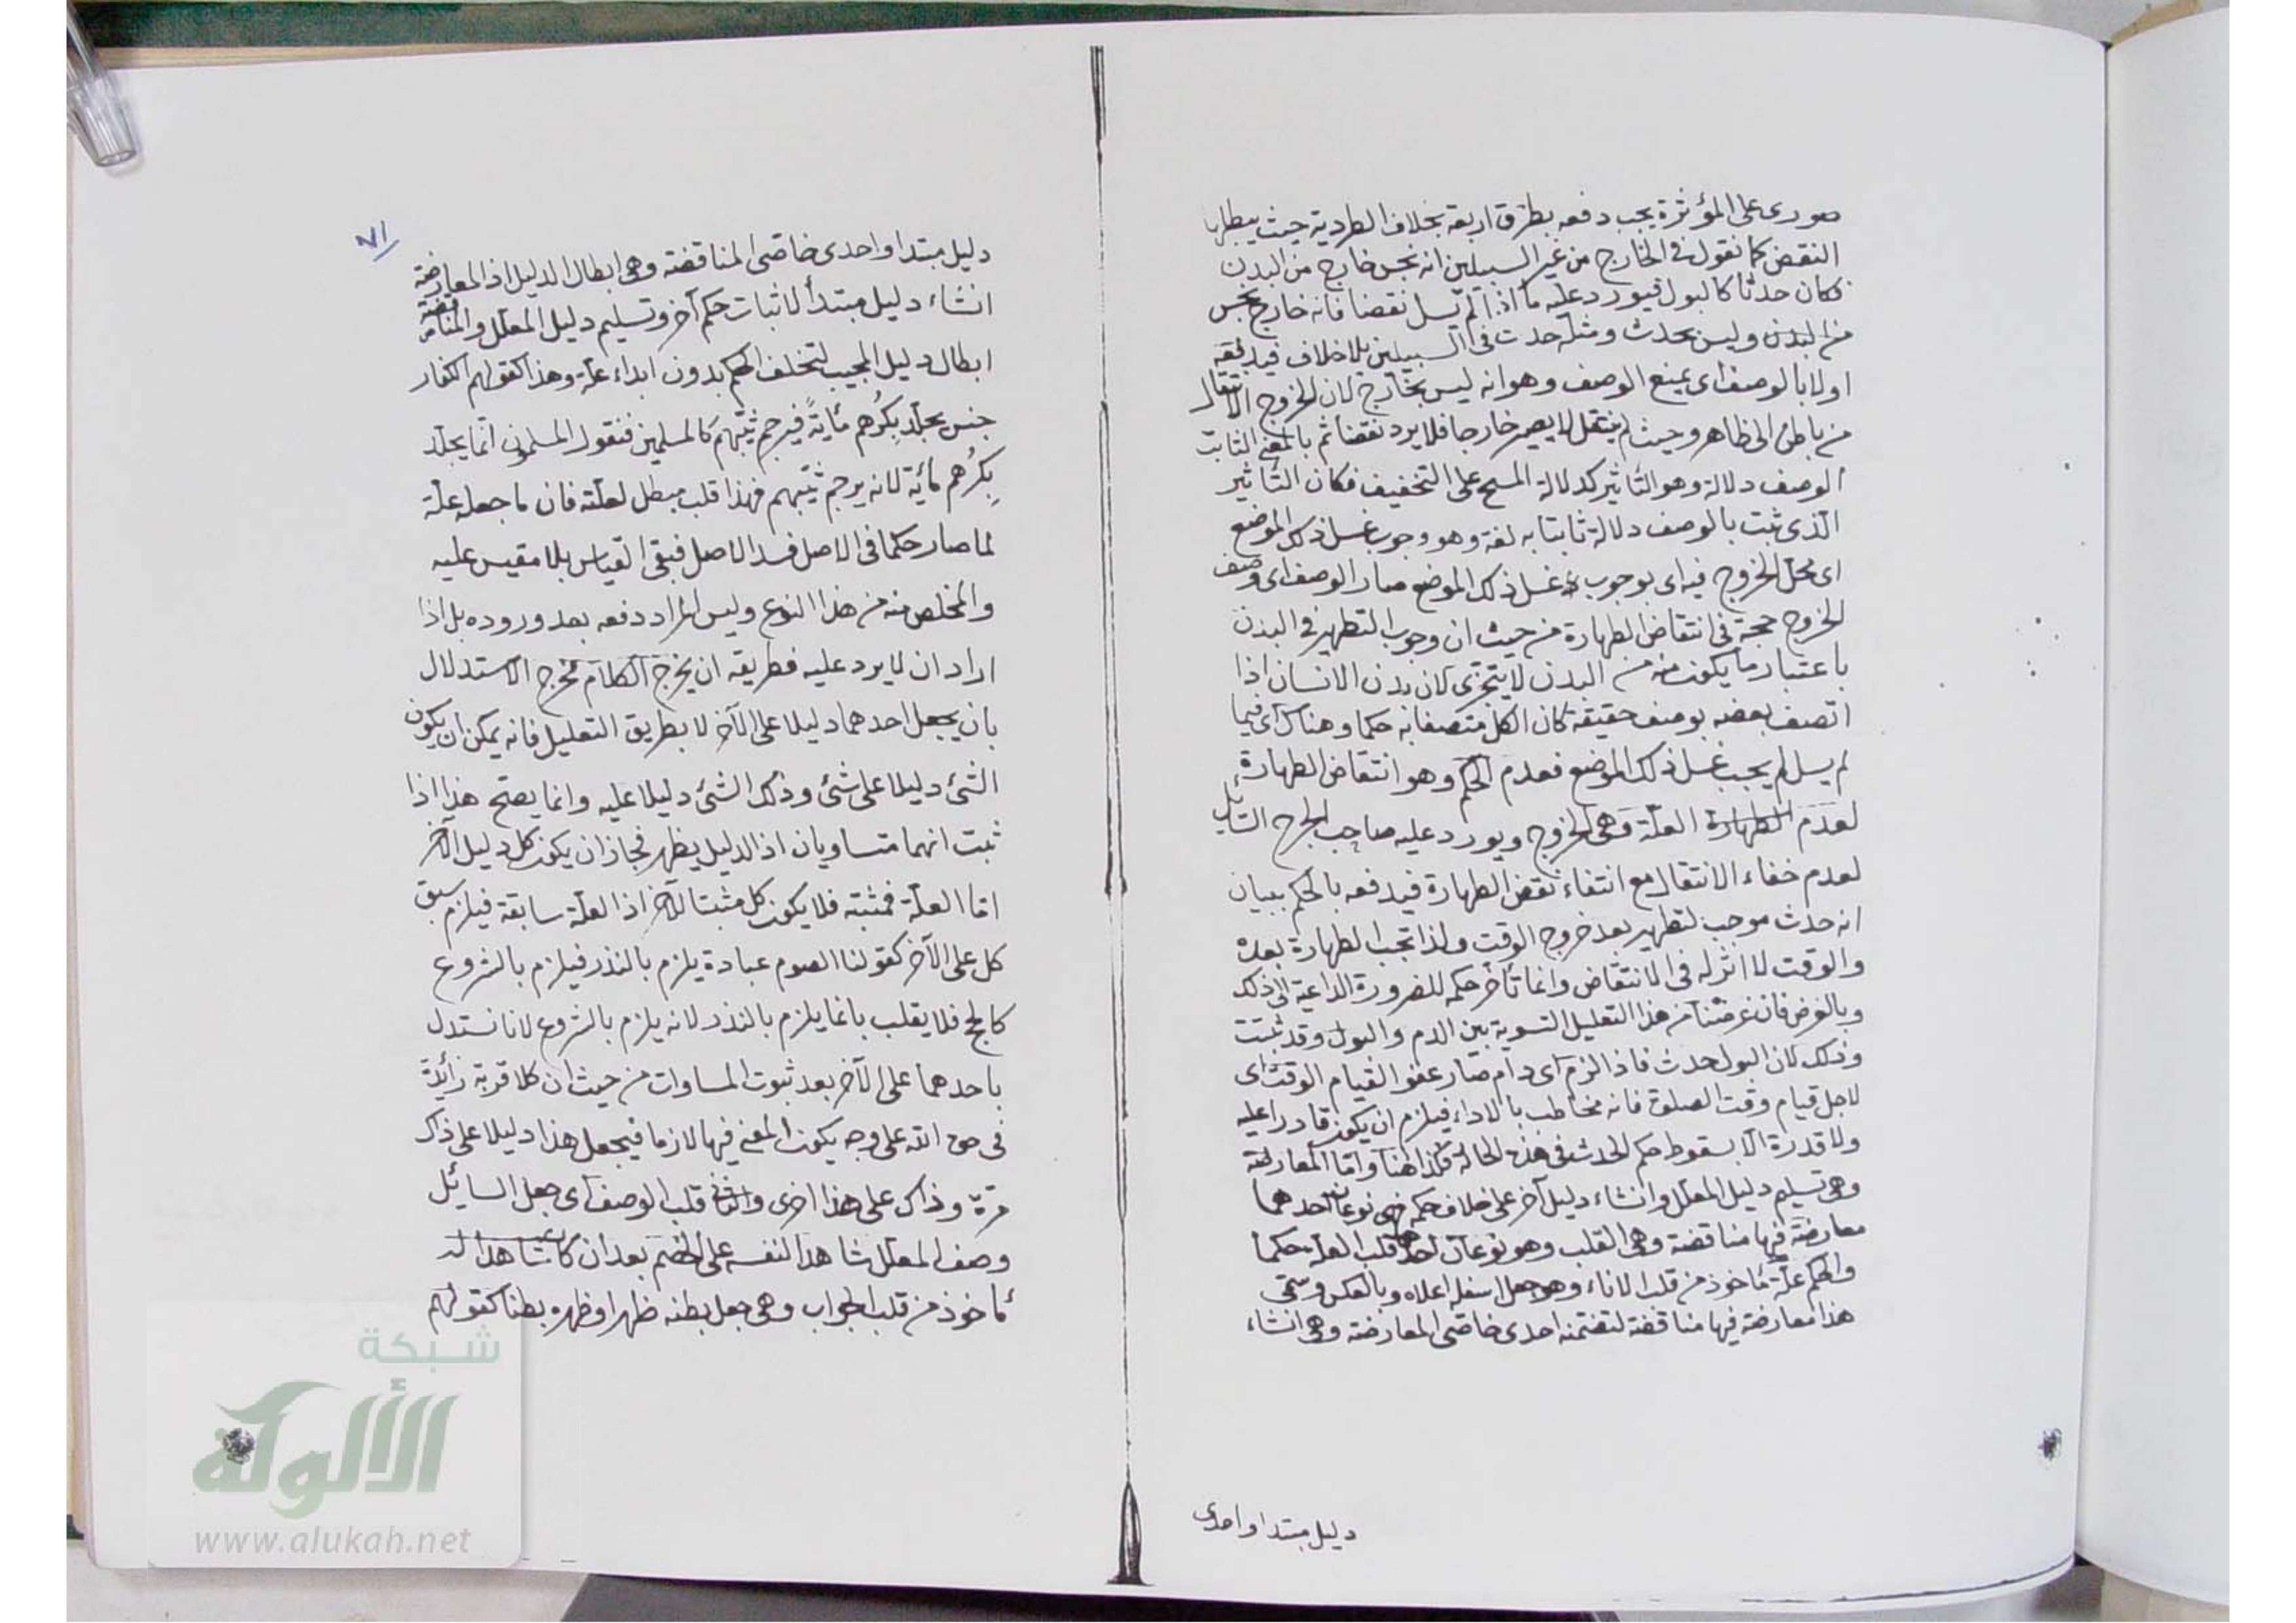 صورى على المؤثرة يجب دفعه بطرق اربعة بخلاف الطردية حيث يبطلها
النقض كما نقول فى الخارج من غير السبيلين انه نجس خارج من البدن
فكان حدثا كالبول فيورد عليه ما اذا لم يسل نقضا فانه خارج نجس
من البدن وليس بحدث ومثله حدث فى السبيلين بلا خلاف فيدفعه
اولا بالوصف اى بمنع الوصف وهو انه ليس بخارج لان الخروج الانتقال
من باطن الى ظاهر وحيث لم ينتقل لا يصير خارجا فلا يرد نقضا ثم بالمعنى الثابت
الوصف دلالة وهو التأثير كدلالة المسح على التخفيف فكان التأثير
الذى ثبت بالوصف دلالة ثابتا به لغة وهو وجوب غسل ذلك الموضع
اى محل الخروج فيه اى بوجوب غسل ذلك الموضع صار الوصف اى وصف
الخروج حجة فى انتقاض الطهارة من حيث ان وجوب التطهير فى البدن
باعتبار ما يكون منه من البدن لا يتجزى لان بدن الانسان اذا
اتصف بعضه بوصف حقيقة كان الكل متصفا به حكما وهناك اى فيما
لم يسل لم يجب غسل ذلك الموضع فعدم الحكم وهو انتقاض الطهارة
لعدم الطهارة العلة وهى الخروج ويورد عليه صاحب الجرح السايل
لعدم خفاء الانتقال مع انتفاء نقض الطهارة فيدفعه بالحكم ببيان
انه حدث موجب لتطهير بعد خروج الوقت ولذا تجب الطهارة بعده
والوقت لا اثر له فى الانتقاض وانما تأخر حكمه للضرورة الداعية الى ذلك
وبالغرض فان غرضنا من هذا التعليل التسوية بين الدم والبول وقد ثبتت
وذلك لان البول حدث فاذا لزم اى دام صار عفوا لقيام الوقت اى
لاجل قيام وقت الصلوة فانه مخاطب بالاداء فيلزم ان يكون قادرا عليه
ولا قدرة الا بسقوط حكم الحدث فى هذه الحالة فكذا هنا واما المعارضة
وهى تسليم دليل المعلل وانشاء دليل آخر على خلاف حكمه فهى نوعان احدهما
معارضة فيها مناقضة وهى القلب وهو نوعان احدهما قلب العلة حكما
والحكم علة مأخوذ من قلب الاناء وهو جعل اسفله اعلاه وبالعكس وسمى
هذا معارضة فيها مناقضة لتضمنه احدى خاصتى المعارضة وهى انشاء
دليل مبتدا واحدى
٧١
دليل مبتدا واحدى خاصتى المناقضة وهى ابطال الدليل اذ المعارضة
انشاء دليل مبتدأ لاثبات حكم آخر وتسليم دليل المعلل والمناقضة
ابطال دليل المجيب لتخلف الحكم بدون ابداء علة وهذا كقولهم الكفار
جنس يجلد بكرُهم مأيةً فيرجم ثيبهم كالمسلمين فنقول المسلمون انما يجلد
بكرُهم مأية لانه يرجم ثيبهم فهذا قلب مبطل لعلته فان ما جعله علة
لما صار حكما فى الاصل فسد الاصل فبقى القياس بلا مقيس عليه
والمخلص منه من هذا النوع وليس المراد دفعه بعد وروده بل اذا
اراد ان لا يرد عليه فطريقه ان يخرج الكلام مخرج الاستدلال
بان يجعل احدهما دليلا على الآخر لا بطريق التعليل فانه يمكن ان يكون
الشئ دليلا على شئ وذلك الشئ دليلا عليه وانما يصح هذا اذا
ثبت انهما متساويان اذ الدليل يظهر فجاز ان يكون كل دليل الآخر
اما العلة فمثبته فلا يكون كل مثبتا للآخر اذ العلة سابقة فيلزم سبق
كل على الآخر كقولنا الصوم عبادة يلزم بالنذر فيلزم بالشروع
كالحج فلا يقلب بانما يلزم بالنذر لانه يلزم بالشروع لانا نستدل
باحدهما على الآخر بعد ثبوت المساوات من حيث ان كلا قربة زائدة
فى حق الله على وجه يكون المعنى فيها لازما فيجعل هذا دليلا على ذاك
مرة وذاك على هذا اخرى والثانى قلب الوصف اى جعل السائل
وصف المعلل شاهدا لنفسه على الخصم بعد ان كان شاهدا له
مأخوذ من قلب الجراب وهى جعل بطنه ظهرا وظهره بطنا كقولهم
شبكة
الألوكة
www.alukah.net